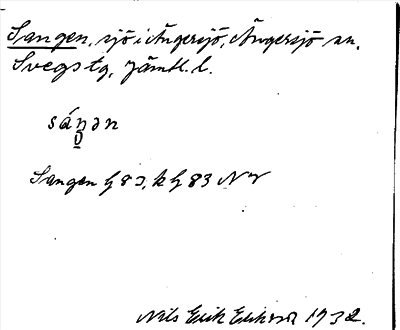 Sangen, sjö i Ängersjö, Ängersjö sn,
Svegs tg, Jämtl. l.
sáŋən
Sangen G 83, k G 83 NV
Nils Erik Erikson 1932.